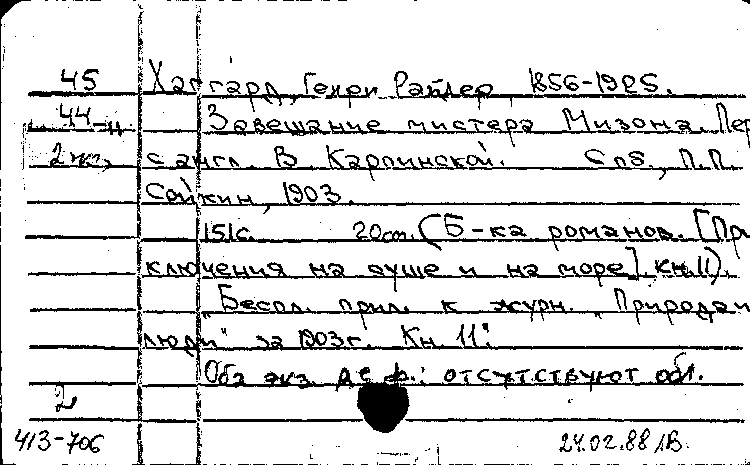 45 Хаггард, Генри Райдер, 1856-1925.
44-11 Завещание мистера Мизона. Пер
2 жг, с англ. В. Карпинской. Спб., П.П.
Сойкин, 1903.
151с. 20см. (Б-ка романов. [При
ключения на суше и на море], кн. 11).
"Беспл. прил. к журн. "Природа и
люди" за 1903г. Кн. 11."
Оба экз. деф.: отсутствуют обл.
2
413-706 24.02.88